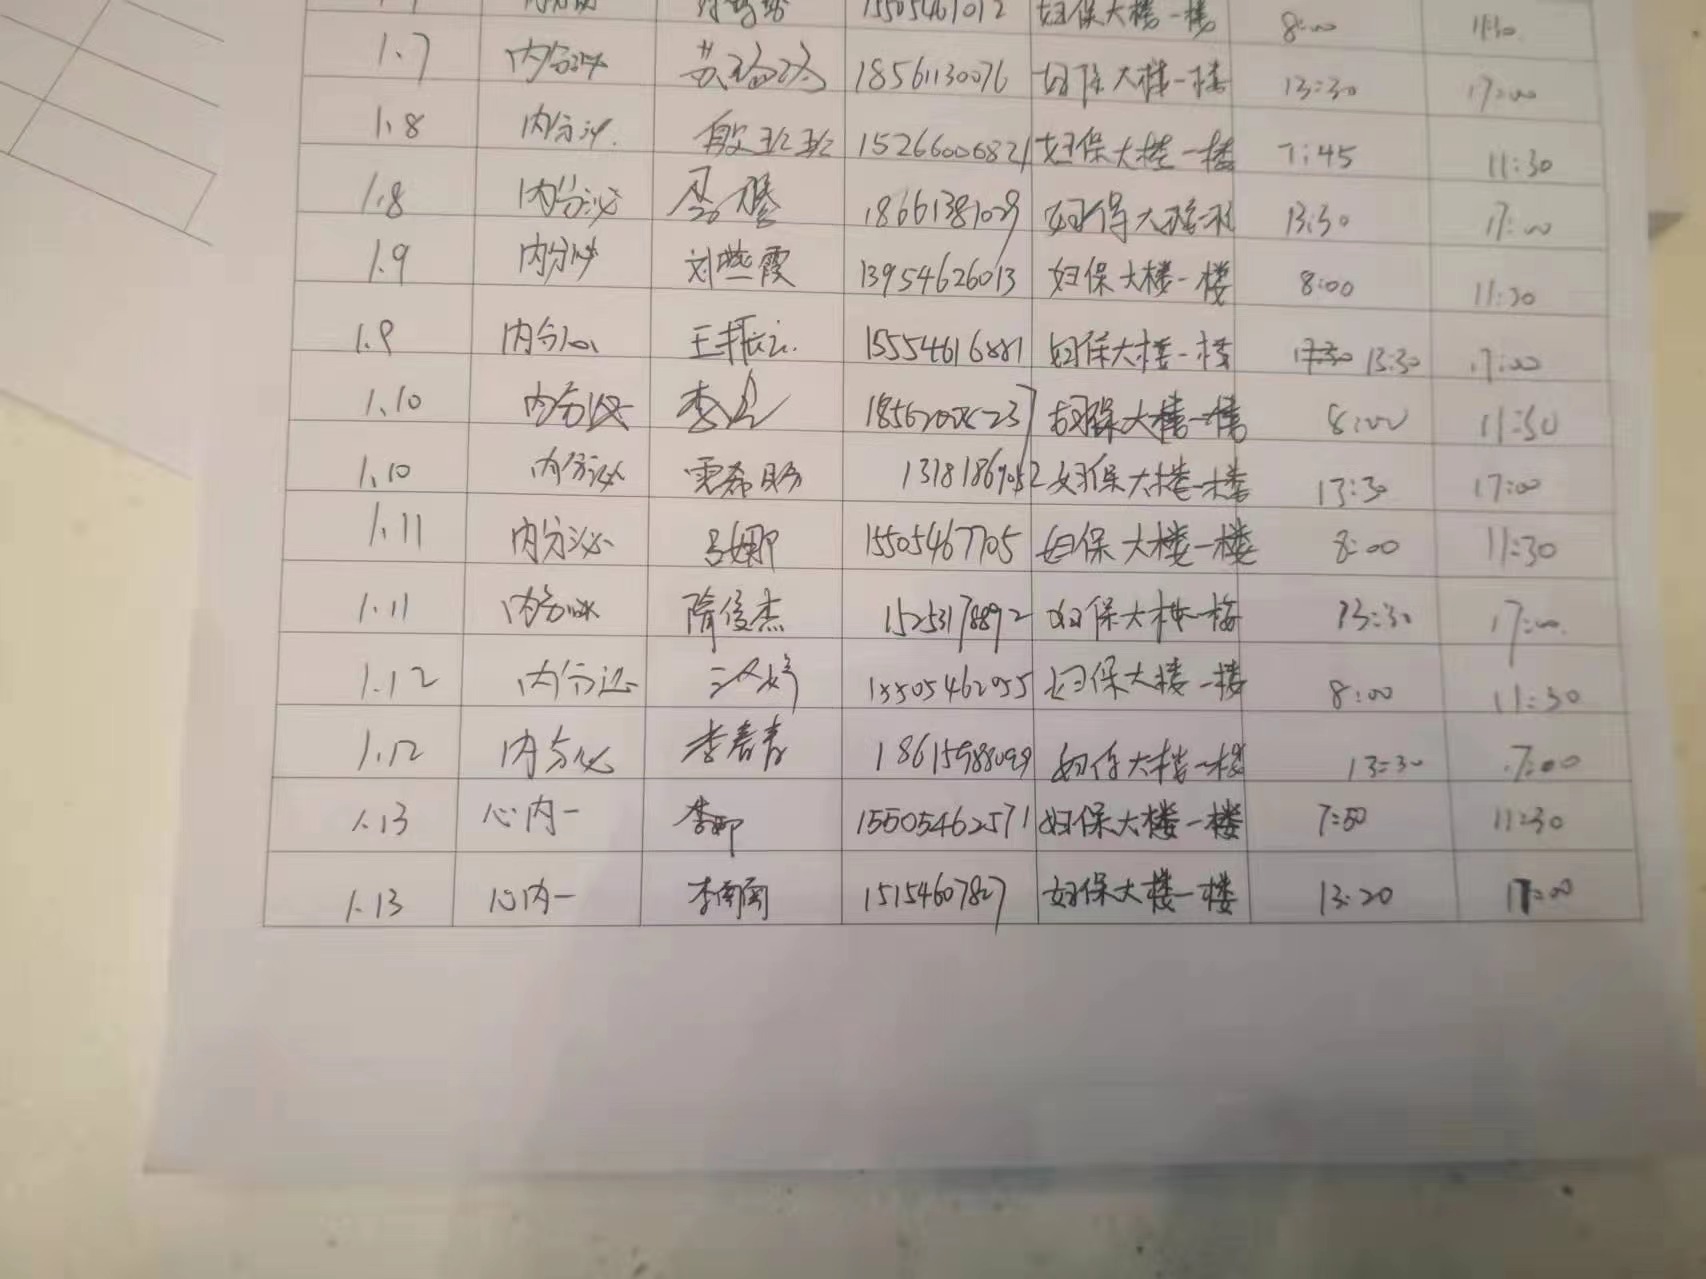 15505461012 妇保大楼一楼 8:00 11:30
1.7 内分泌 18561130076 妇保大楼一楼 13:30 17:00
1.8 内分泌 殷班班 15266006821 妇保大楼一楼 7:45 11:30
1.8 内分泌 18661381029 妇保大楼一楼 13:30 17:00
1.9 内分泌 刘燕霞 13954626013 妇保大楼一楼 8:00 11:30
1.9 内分泌 王振云 15554616881 妇保大楼一楼 13:30 17:00
1.10 内分泌 李 妇保大楼一楼 8:00 11:30
1.10 内分泌 妇保大楼一楼 13:30 17:00
1.11 内分泌 吕娜 15505467705 妇保大楼一楼 8:00 11:30
1.11 内分泌 隋俊杰 15253178892 妇保大楼一楼 13:30 17:00
1.12 内分泌 15505462055 妇保大楼一楼 8:00 11:30
1.12 内分泌 李春青 18615988099 妇保大楼一楼 13:30 17:00
1.13 心内一 李娜 15505462571 妇保大楼一楼 7:50 11:30
1.13 心内一 李南南 15154607827 妇保大楼一楼 13:20 17:00